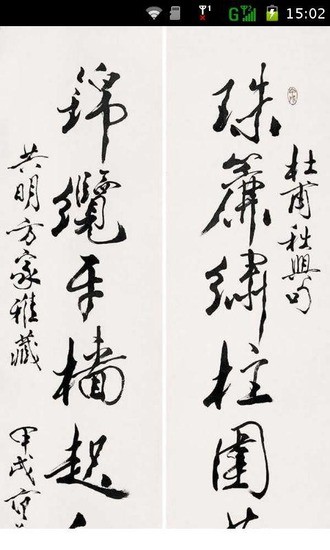 15:02
杜甫秋興句
珠簾繡柱圍
錦纜牙檣起
共明方家雅藏
甲戌